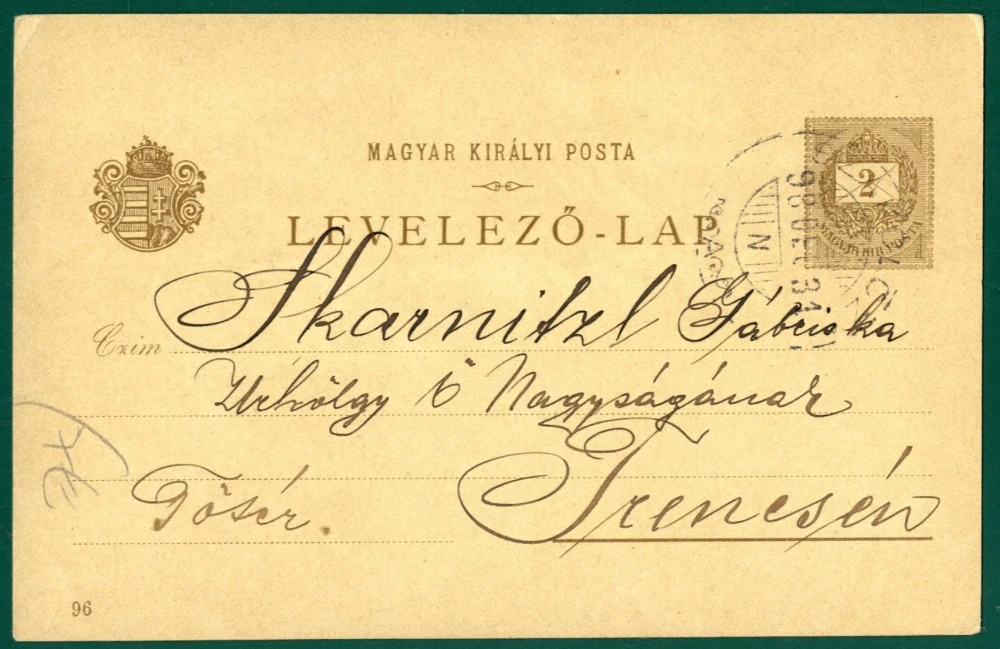 MAGYAR KIRÁLYI POSTA
LEVELEZŐ-LAP
2
MAGYAR KIR. POSTA
98 DEC 31
N
Czim Skarnitzl Gábriska
Urhölgy ő Nagyságának
Főtér.
Trencsén
96